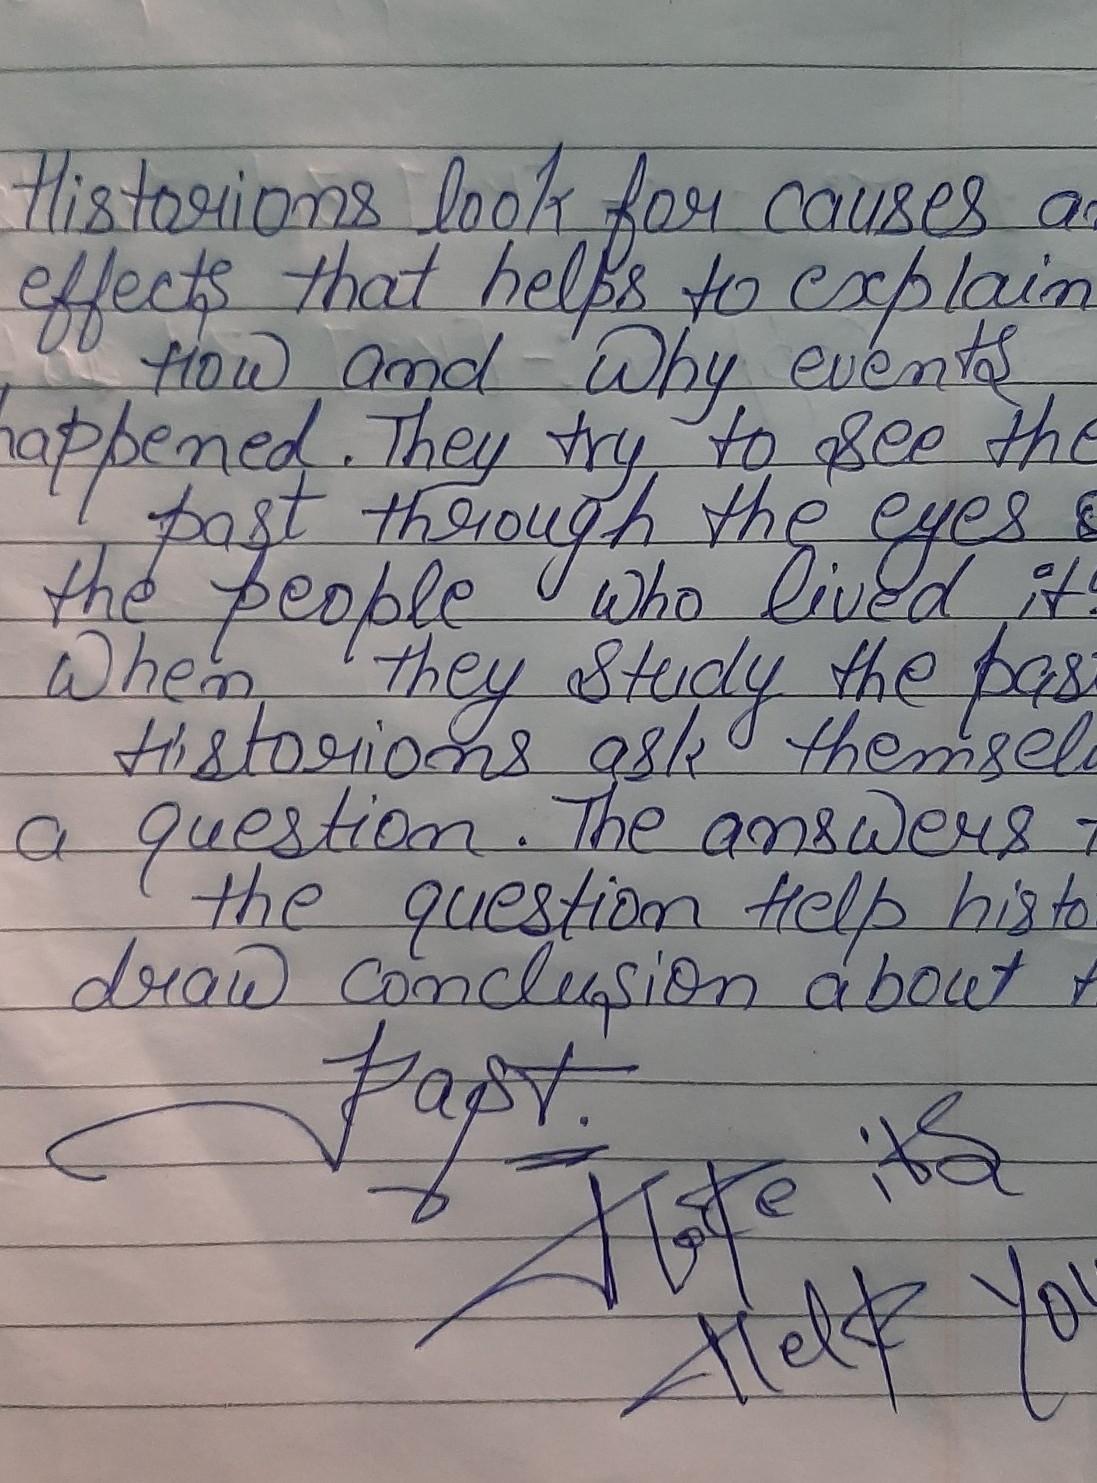 Historians look for causes a
effects that helps to explain
How and Why events
happened. They try to see the
past through the eyes
the people who lived it.
When they study the pas
Historians ask themsel
a question. The answers
the question Help histo
draw conclusion about t
Past.
its
Help You